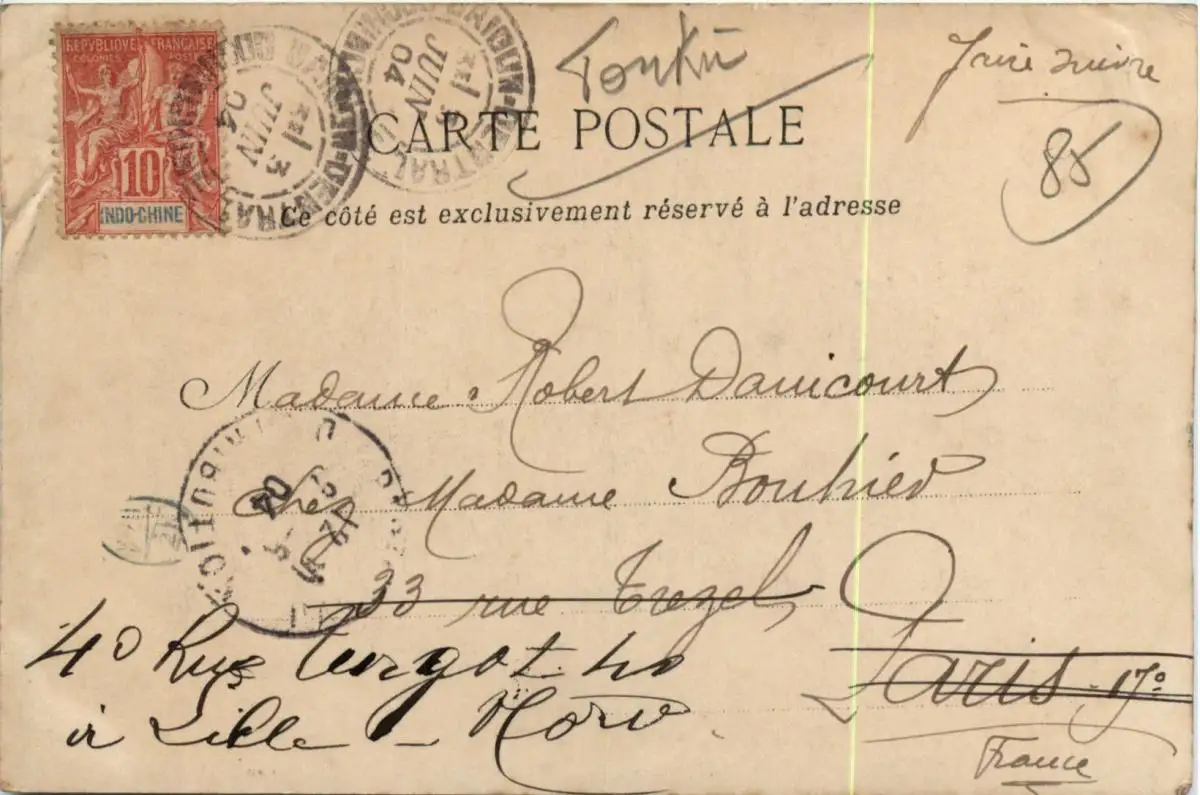 REPVBLIQVE FRANÇAISE
COLONIES POSTES
10
INDO-CHINE
3
JUIN
04
3
JUIN
04
Tonkin
faire suivre
85
CARTE POSTALE
Ce côté est exclusivement réservé à l'adresse
Madame Robert Danicourt
Chez Madame Bouhier
33 rue Trezel
Paris 17e
40 Rue Turgot 40
à Lille - Nord
France
DISTRIBUTION
04